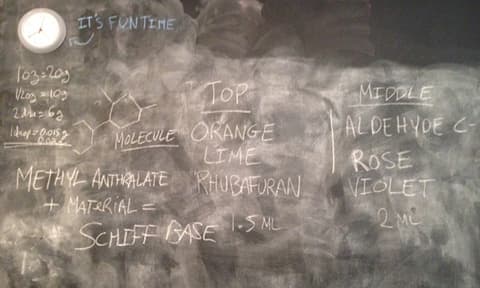 IT'S FUNTIME
1oz=20g
1/2oz=10g
=6g
MOLECULE
METHYL ANTHRALATE
+ MATERIAL =
SCHIFF BASE
TOP
ORANGE
LIME
RHUBAFURAN
1.5 ML
MIDDLE
ALDEHYDE C-
ROSE
VIOLET
2 ML